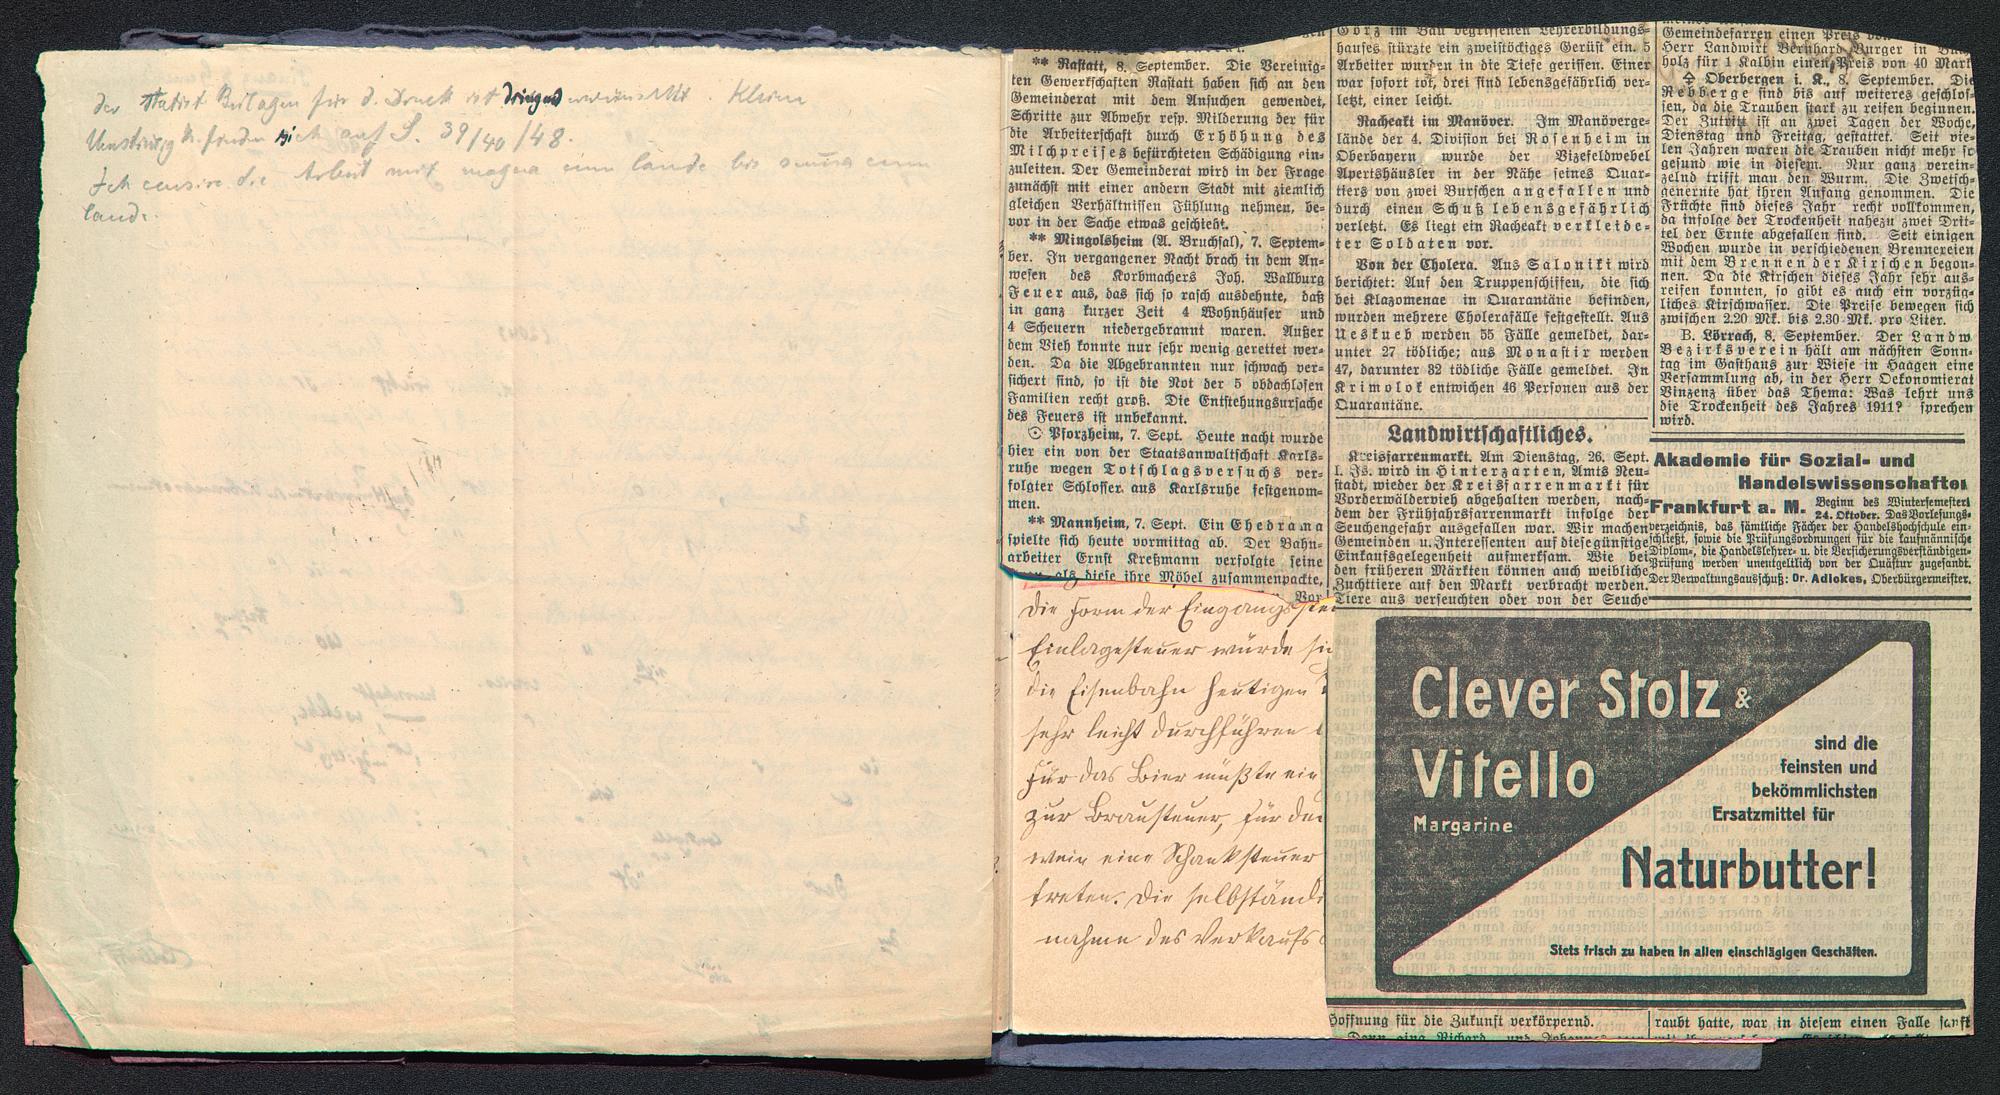 der statist Beilagen für d. Druck ist dringend erwünscht. Kleine
finden sich auf S. 39/40/48.
Ich censire die Arbeit mit magna cum laude bis summa cum
laude.
** Rastatt, 8. September. Die Vereinig-
ten Gewerkschaften Rastatt haben sich an den
Gemeinderat mit dem Ansuchen gewendet,
Schritte zur Abwehr resp. Milderung der für
die Arbeiterschaft durch Erhöhung des
Milchpreises befürchteten Schädigung ein-
zuleiten. Der Gemeinderat wird in der Frage
zunächst mit einer andern Stadt mit ziemlich
gleichen Verhältnissen Fühlung nehmen, be-
vor in der Sache etwas geschieht.
** Mingolsheim (A. Bruchsal), 7. Septem-
ber. In vergangener Nacht brach in dem An-
wesen des Korbmachers Joh. Wallburg
Feuer aus, das sich so rasch ausdehnte, daß
in ganz kurzer Zeit 4 Wohnhäuser und
4 Scheuern niedergebrannt waren. Außer
dem Vieh konnte nur sehr wenig gerettet wer-
den. Da die Abgebrannten nur schwach ver-
sichert sind, so ist die Not der 5 obdachlosen
Familien recht groß. Die Entstehungsursache
des Feuers ist unbekannt.
⊙ Pforzheim, 7. Sept. Heute nacht wurde
hier ein von der Staatsanwaltschaft Karls-
ruhe wegen Totschlagsversuchs ver-
folgter Schlosser aus Karlsruhe festgenom-
men.
** Mannheim, 7. Sept. Ein Ehedrama
spielte sich heute vormittag ab. Der Bahn-
arbeiter Ernst Kreßmann verfolgte seine
als diese ihre Möbel zusammenpackte,
Vor
Die Form der Eingangssteu
Einlagesteuer würde sic
die Eisenbahn heutigen
sehr leicht durchführen
Für das Bier müßte ein
zur Brausteuer, für den
wein eine Schanksteuer
treten. Die selbständi
nahme des Verkaufs
Görz im Bau begriffenen Lehrerbildungs-
hauses stürzte ein zweistöckiges Gerüst ein. 5
Arbeiter wurden in die Tiefe gerissen. Einer
war sofort tot, drei sind lebensgefährlich ver-
letzt, einer leicht.
Racheakt im Manöver. Im Manöverge-
lände der 4. Division bei Rosenheim in
Oberbayern wurde der Vizefeldwebel
Apertshäusler in der Nähe seines Quar-
tiers von zwei Burschen angefallen und
durch einen Schuß lebensgefährlich
verletzt. Es liegt ein Racheakt verkleide-
ter Soldaten vor.
Von der Cholera. Aus Saloniki wird
berichtet: Auf den Truppenschiffen, die sich
bei Klazomenae in Quarantäne befinden,
wurden mehrere Cholerafälle festgestellt. Aus
Ueskueb werden 55 Fälle gemeldet, dar-
unter 27 tödliche; aus Monastir werden
47, darunter 32 tödliche Fälle gemeldet. In
Krimolok entwichen 46 Personen aus der
Quarantäne.
Landwirtschaftliches.
Kreisfarrenmarkt. Am Dienstag, 26. Sept.
l. Js. wird in Hinterzarten, Amts Neu-
stadt, wieder der Kreisfarrenmarkt für
Vorderwäldervieh abgehalten werden, nach-
dem der Frühjahrsfarrenmarkt infolge der
Seuchengefahr ausgefallen war. Wir machen
Gemeinden u. Interessenten auf diese günstige
Einkaufsgelegenheit aufmerksam. Wie bei
den früheren Märkten können auch weibliche
Zuchttiere auf den Markt verbracht werden.
Tiere aus verseuchten oder von der Seuche
Gemeindefarren einen Preis von
Herr Landwirt Bernhard Burger in Buch
holz für 1 Kalbin einen Preis von 40 Mark
Oberbergen i. K., 8. September. Die
Rebberge sind bis auf weiteres geschlos-
sen, da die Trauben stark zu reifen beginnen.
Der Zutritt ist an zwei Tagen der Woche,
Dienstag und Freitag, gestattet. Seit vie-
len Jahren waren die Trauben nicht mehr so
gesund wie in diesem. Nur ganz verein-
zelnd trifft man den Wurm. Die Zwetsch-
genernte hat ihren Anfang genommen. Die
Früchte sind dieses Jahr recht vollkommen,
da infolge der Trockenheit nahezu zwei Drit-
tel der Ernte abgefallen sind. Seit einigen
Wochen wurde in verschiedenen Brennereien
mit dem Brennen der Kirschen begon-
nen. Da die Kirschen dieses Jahr sehr aus-
reifen konnten, so gibt es auch ein vorzüg-
liches Kirschwasser. Die Preise bewegen sich
zwischen 2.20 Mk. bis 2.30 Mk. pro Liter.
B. Lörrach, 8. September. Der Landw
Bezirksverein hält am nächsten Sonn-
tag im Gasthaus zur Wiese in Haagen eine
Versammlung ab, in der Herr Oekonomierat
Vinzenz über das Thema: Was lehrt uns
die Trockenheit des Jahres 1911? sprechen
wird.
Akademie für Sozial- und
Handelswissenschaften
Frankfurt a. M. Beginn des Wintersemesters
24. Oktober. Das Vorlesungs-
verzeichnis, das sämtliche Fächer der Handelshochschule ein-
schließt, sowie die Prüfungsordnungen für die kaufmännische
Diplom-, die Handelslehrer- u. die Versicherungsverständigen-
Prüfung werden unentgeltlich von der Quästur zugesandt.
Der Verwaltungsausschuß: Dr. Adickes, Oberbürgermeister.
Clever Stolz &
Vitello
Margarine
sind die
feinsten und
bekömmlichsten
Ersatzmittel für
Naturbutter!
Stets frisch zu haben in allen einschlägigen Geschäften.
Hoffnung für die Zukunft verkörpernd.
Dann ging Richard und Johannes
raubt hatte, war in diesem einen Falle sanft